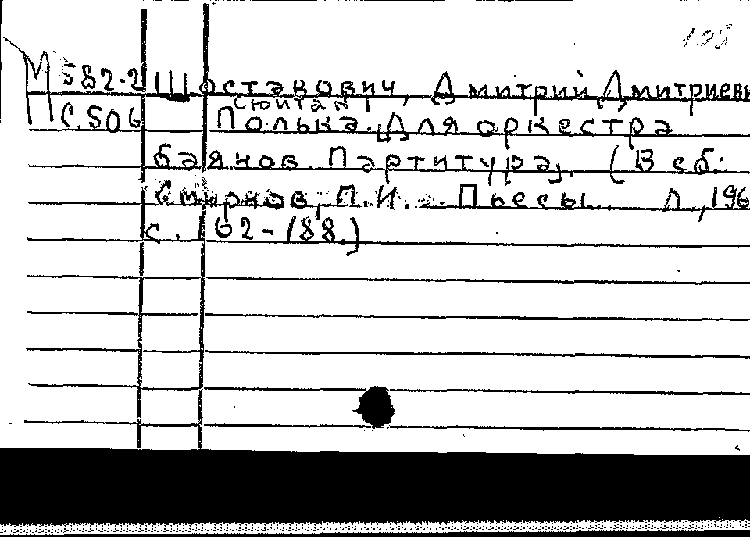 108
М 582-2 Шостакович, Дмитрий Дмитриеви
С.506 Полька. Для оркестра
баянов. Партитура. (В сб:
Смирнов, П.И. Пьесы. Л., 196
с. 162-188.)